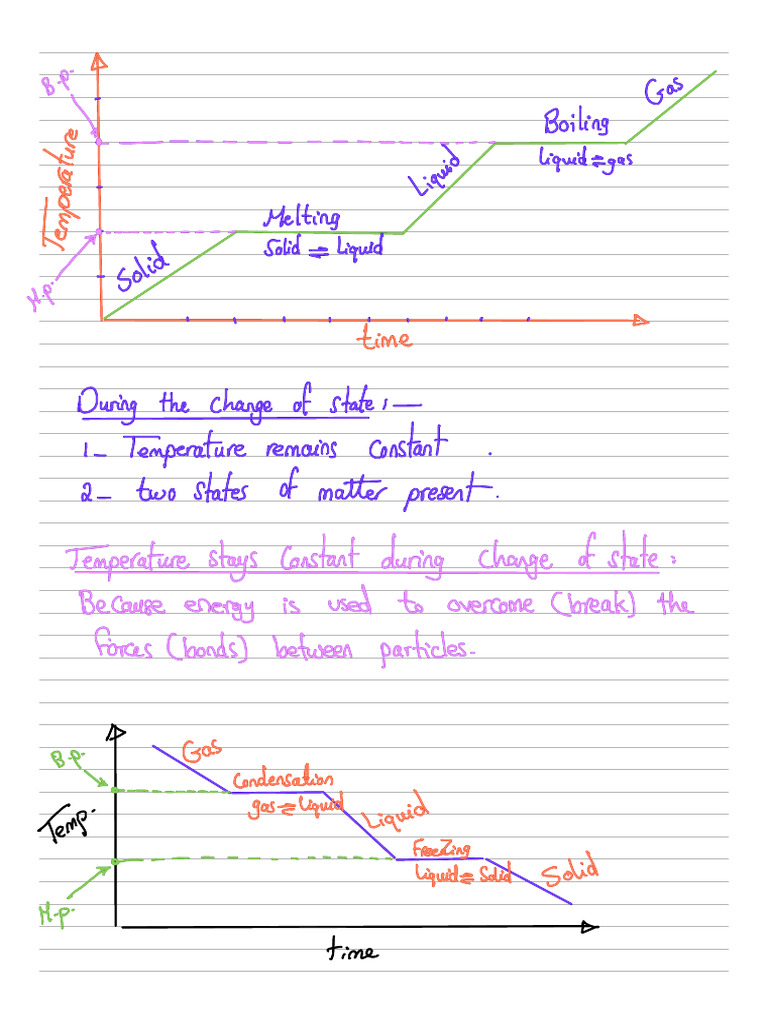 B.p.
Gas
Boiling
Liquid ⇌ gas
Liquid
Temperature
Melting
Solid ⇌ Liquid
Solid
M.p.
time
During the change of state :—
1- Temperature remains constant .
2- two states of matter present.
Temperature stays constant during change of state :
Because energy is used to overcome (break) the
forces (bonds) between particles.
Gas
B.p.
Condensation
gas ⇌ Liquid
Liquid
Temp.
Freezing
Liquid ⇌ Solid
Solid
M.p.
time